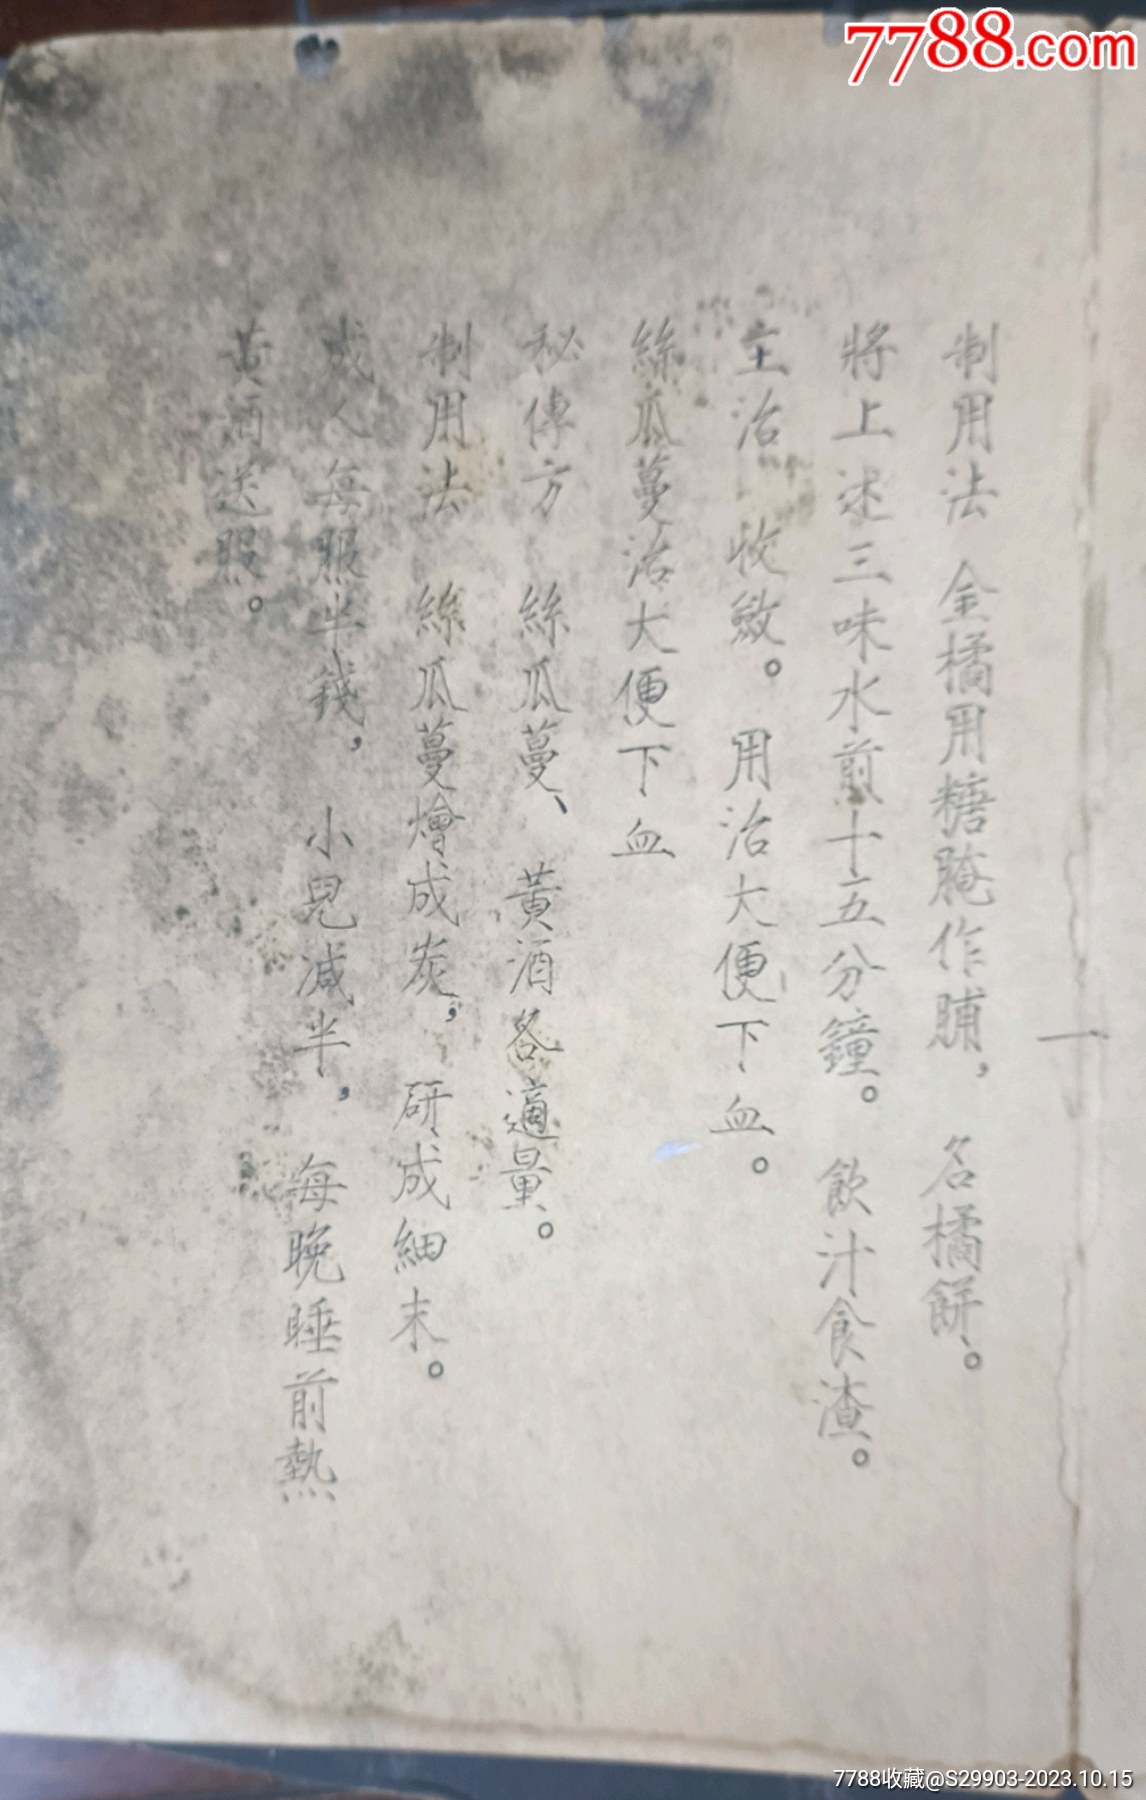 7788.com
一
制用法 金橘用糖腌作脯， 名橘餅。
將上述三味水煎十五分鐘。 飲汁食渣。
主治 收斂。 用治大便下血。
絲瓜蔓治大便下血
秘傳方 絲瓜蔓、 黃酒各適量。
制用法 絲瓜蔓燴成炭， 研成細末。
成人每服半錢， 小兒減半， 每晚睡前熱
黃酒送服。
7788收藏@S29903-2023.10.15